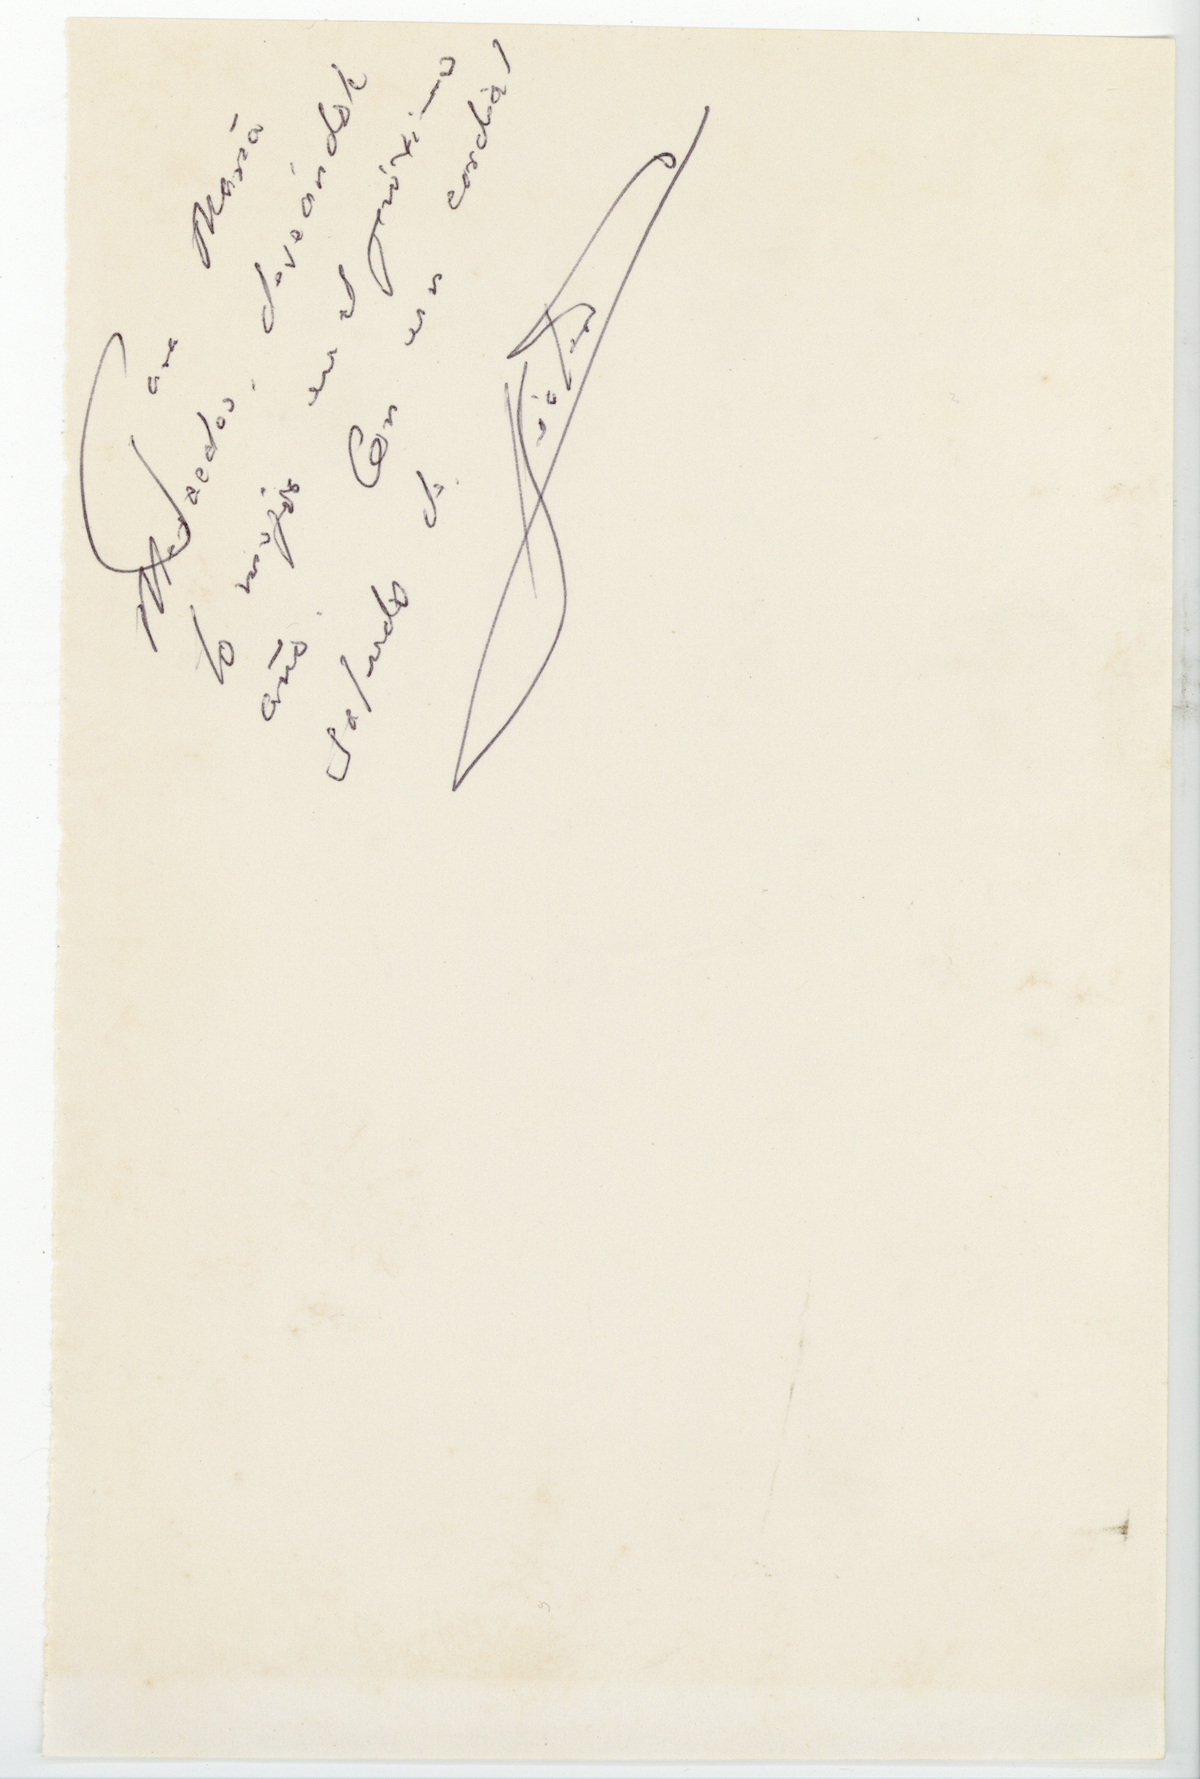 Para María
Mercedes, deseándole
lo mejor en el próximo
año. Con un cordial
saludo de